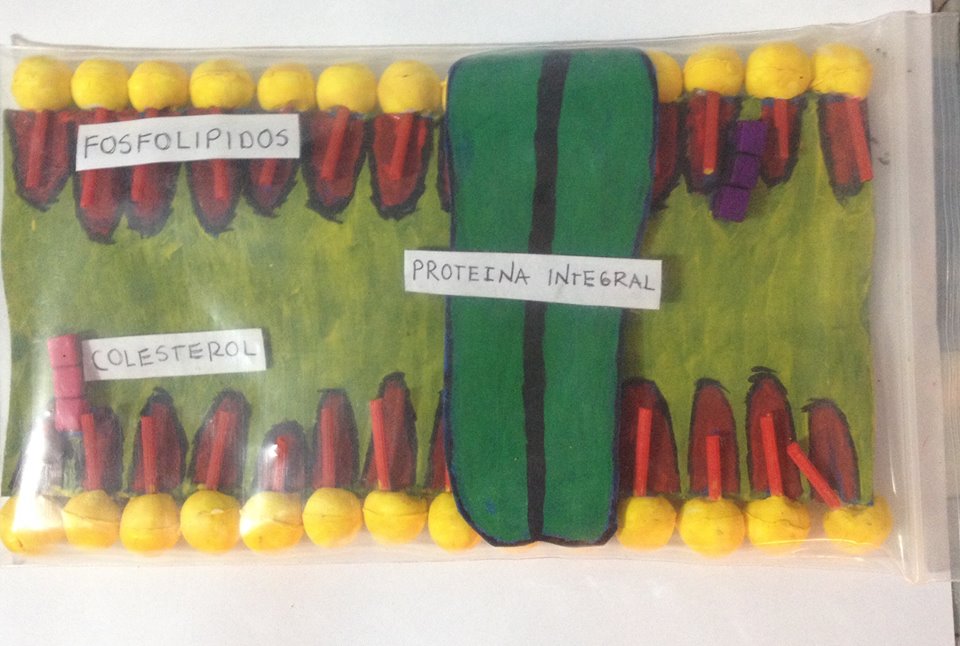 FOSFOLIPIDOS
PROTEINA INTEGRAL
COLESTEROL